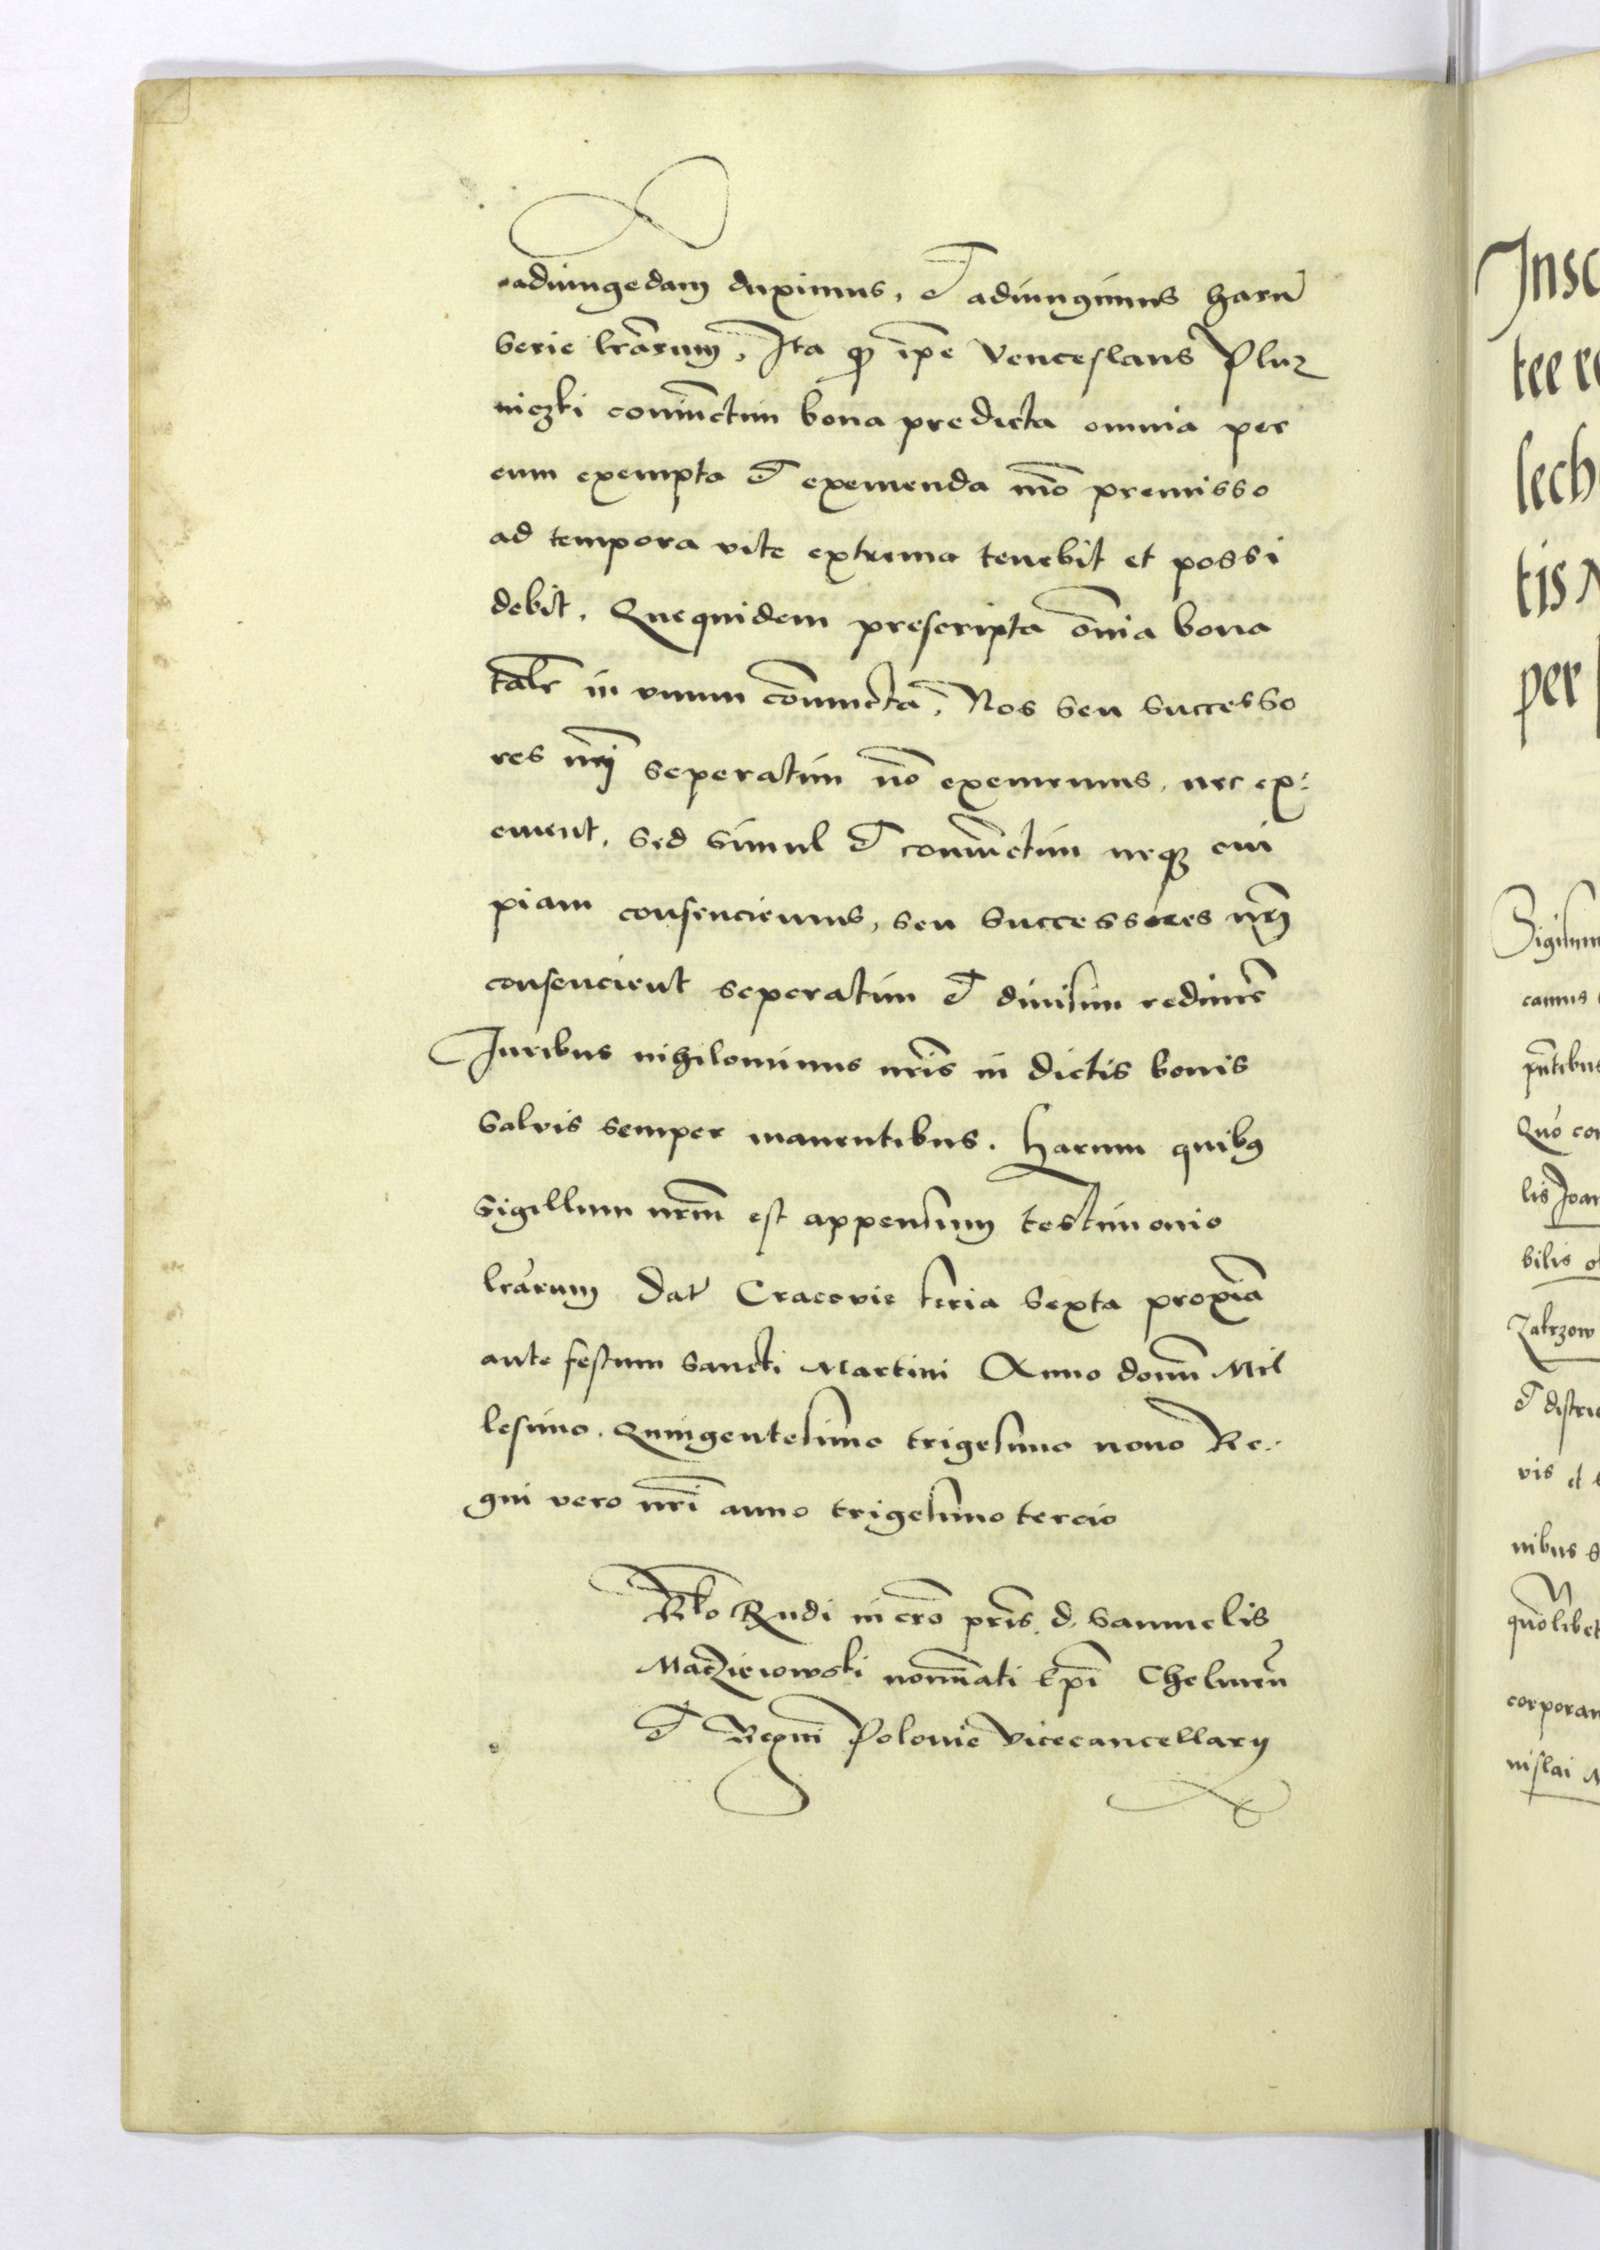 adiungedam duximus, et adiungimus harū
serie lrārum, Ita qɔ ip̄e Venceslaus Pluz
niczki coniūctim bona predicta omnia per
eum exempta et exemenda mō premisso
ad tempora vite extrema tenebit et possi
debit. Quequidem prescripta ōnia bona
talr̄ in vnum cōniuncta, Nos seu successo
res nrj̄ seperatim nō exememus, nec ex:
ement, sed simul et coniūctim neqꝫ cui
piam consenciemus, seu successores nr̄j
consencient seperatim et diuisim redimēs
Juribus nihilominus nrīs in dictis bonis
salvis semper manentibus. Harum quibꝰ
sigillum nrm̄ est appensum testimonio
lrārum Dat̄ Cracovie feria sexta proxīa
ante festum sancti Martini Anno domī Mil
lesimo. Quingentesimo trigesimo nono Re:
gni vero nrī anno trigesimo tercio
Rlo Rndi in cro prīs. d. Samuelis
Maczieiowski nomīnati Epī Chelmen̄
et Regni Polonie Vicecancellarij
Insc
tee re
lech
tis
per
Sigism
camus
pn̄tibus
Quō con
lis Joan
bilis
Zakrzow
et distri
vis et
nibus
quōlibet
corporan
nislai